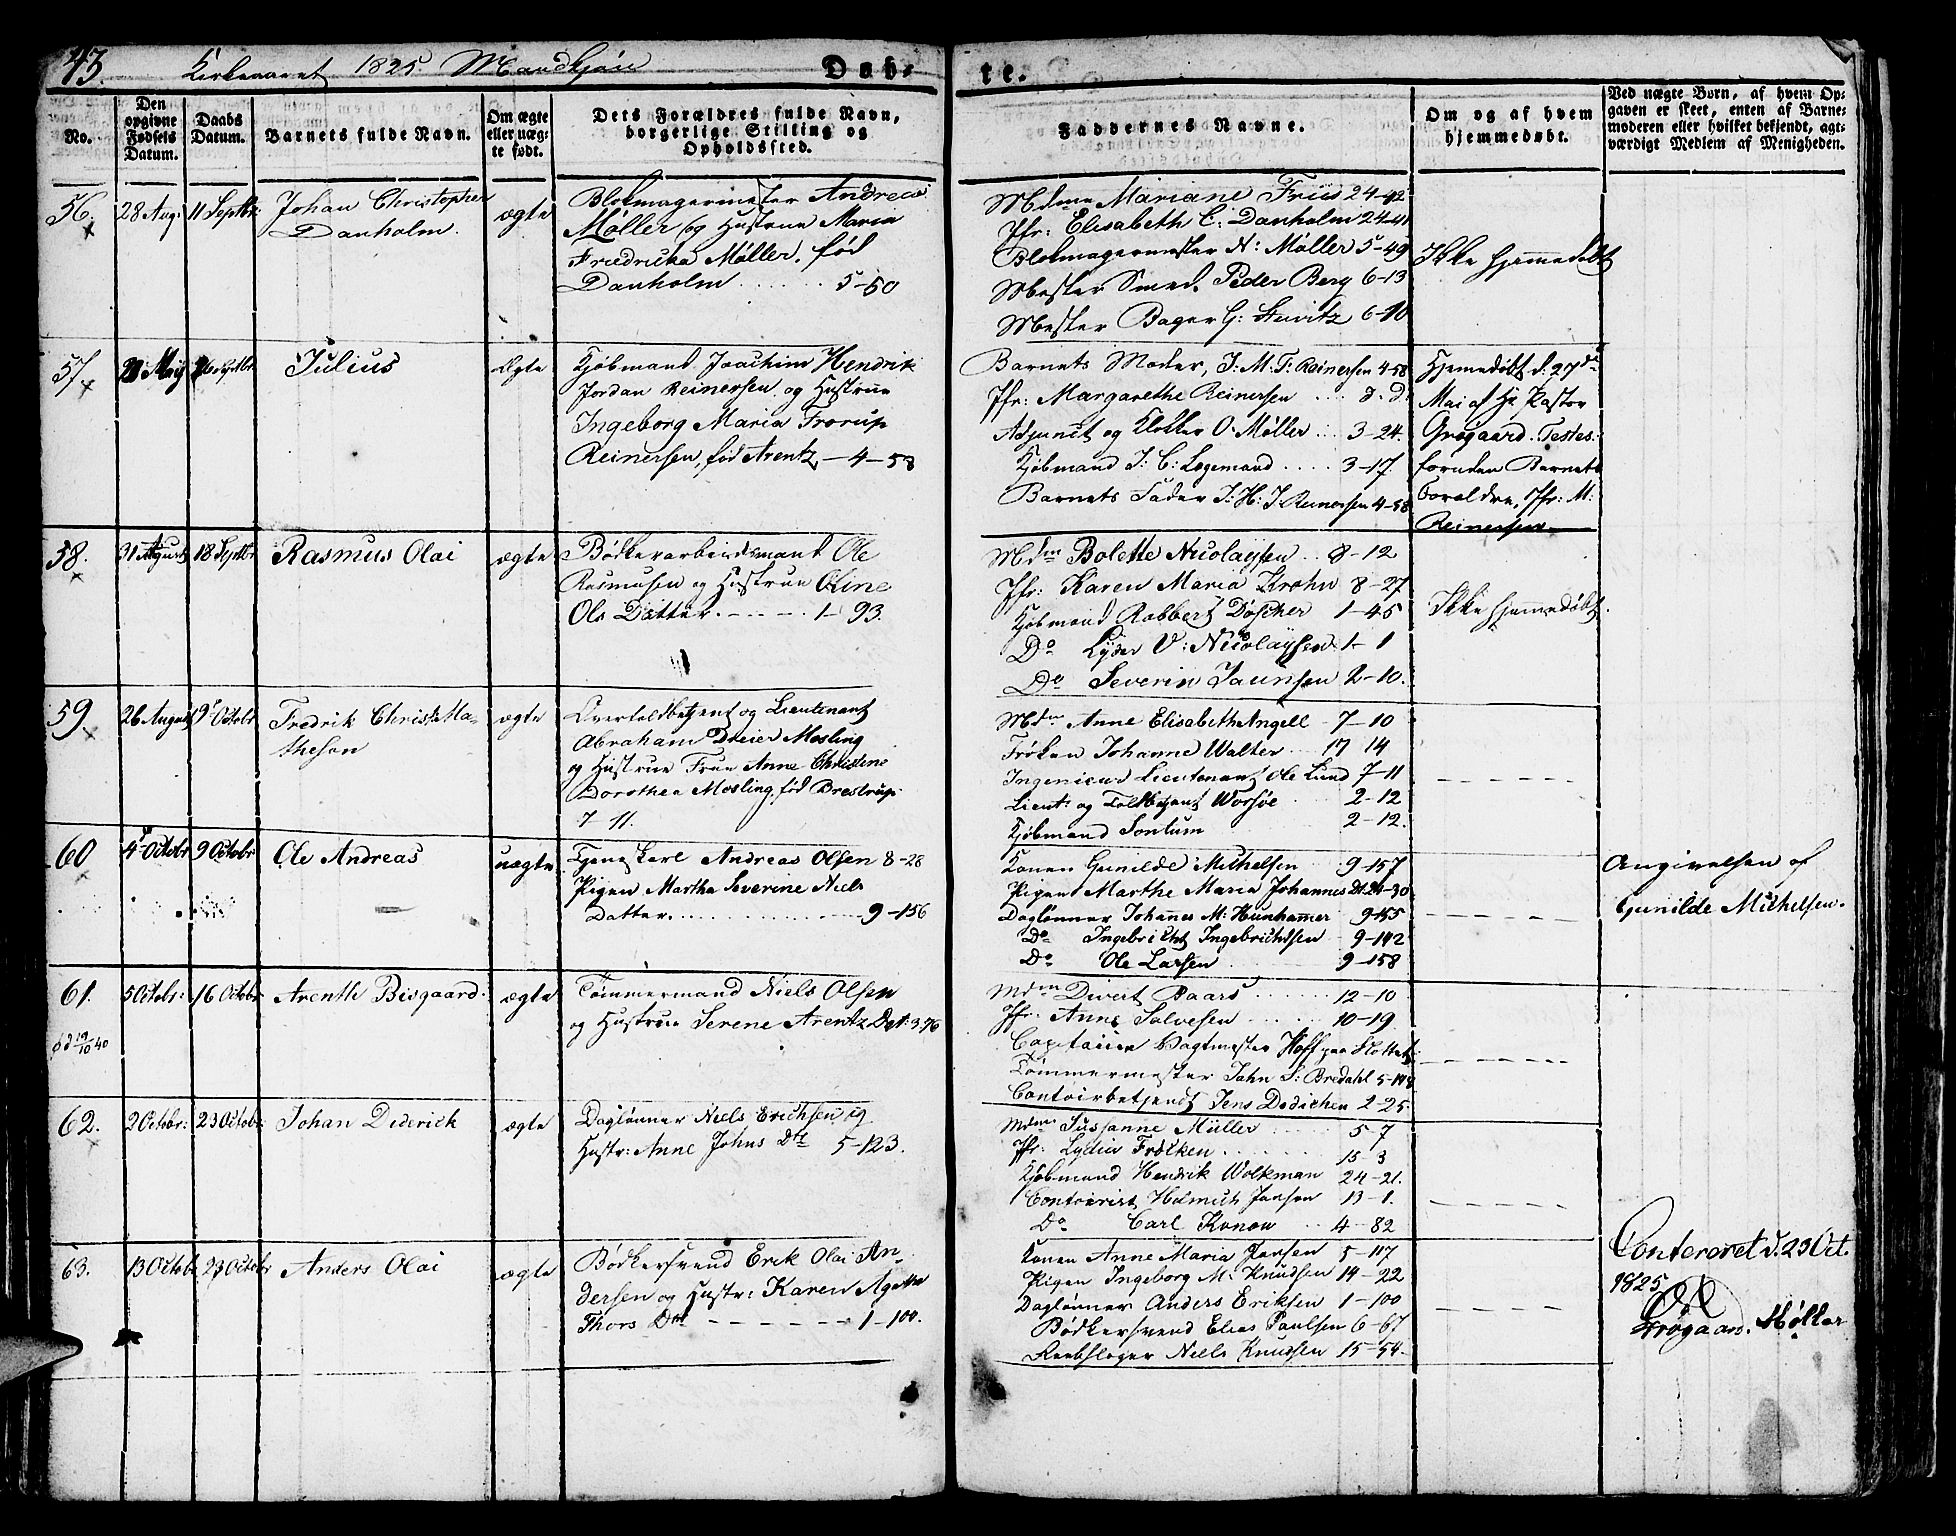 43.
Kirkeaaret 1825. Mandkjøn
Døb-
te.
No.
Den opgivne Fødsels Datum.
Daabs Datum.
Barnets fulde Navn.
Om ægte eller uægte født.
Dets Forældres fulde Navn, borgerlige Stilling og Opholdssted.
Faddernes Navne.
Om og af hvem hjemmedøbt.
Ved uægte Børn, af hvem Opgaven er skeet, enten af Barnemoderen eller hvilket bekjendt, agtværdigt Medlem af Menigheden.
56.
28 Aug:
11 Septbr:
Johan Christopher
Danholm.
ægte
Blokmagermester Andreas
Møller og Hustrue Maria
Friedricka Møller, fød
Danholm ...... 5-50
Mdme Mariane Friis 24-42
Jfr: Elisabeth C: Danholm 24-41
Blokmagermester N: Møller 5-49
Mester Smed. Peder Berg 6-13
Mester Bager G: 6-10
Ikke hjemmedøbt
57.
Maij
26 Septbr
Julius
Ægte
Kjøbmand Joachim Hendrik
Jordan Reinersen og Hustrue
Ingeborg Maria Frorup
Reinersen, fød Arentz - 4-58
Barnets Moder, I. M. F: Reinersen 4-58
Jfr: Margarethe Reinersen .... d. d.
Adjunct og Klokker O. Møller ... 3-24.
Kjøbmand I: C: Lægemand .... 3-17.
Barnets Fader I: H: J. Reinersen 4-58
Hjemmedøbt d: 27de
Mai af Hr Pastor
Grøgaard. Testes.
foruden Barnets
Forældre, Jfr: M:
Reinersen
58.
31 Augusts
18 Septbr
Rasmus Olai
ægte
Bødkerarbeidsmand Ole
Rasmusen og Hustrue Oline
Ols Datter. - - - - 1-93.
Mdm Bolette Nicolaysen .. 8-12
Jfr: Karen Maria Krohn 8-27
Kjøbmand Robbert Døscher 1-45
Do Lyder V: Nicolaysen 1-1
Do Severin Jaunsen 2-10.
Ikke hjemmedøbt.
59.
26 August
9 Octobr
Fredrik Christ: Ma-
theson
ægte
Overtoldbetjent og Lieutenant
Abraham Dreier Mosling
og Hustrue Frue Anne Christine
Dorothea Mosling, fød Brestrup.
7-11.
Mdm Anne Elisabeth Angell - 7-10
Frøken Johanne Walter .. 17 14
Ingenieur Lieutenant Ole Lund 7-11
Lieut: og Toldbetjent Worsøe 2-12
Kjøbmand Sontum 2-12.
60
4 Octobr
9 Octobr:
Ole Andreas
uægte
Tjenestkarl Andreas Olsen 8-28
Pigen Martha Severine Niels
Datter. 9-156
Konen Gunilde Michelsen 9-157
Pigen Marthe Maria Johannes Dt 24-30
Daglønner Johanes M: Hunhamer 9-155
Do Ingebricht Ingebrichtsen 9-142
Do Ole Larsen 9-158
Angivelsen af
Gunilde Michelsen.
61.
5 Octobr:
16 Octobr
Arenth Bisgaard.
ægte
Tømmermand Niels Olsen
og Hustrue Serene Arentz Dat: 3.76
Mdm Divert Baars ...... 12-10
Jfr: Anne Salvesen ...... 10-19
Capitaien Vagtmester Hoff paa Slottet
Tømmermester Jahn S: Bredahl 5-148
Contoirbetjendt Jens Dedichen 2-25.
62.
2 Octobr:
23 Octobr:
Johan Diderick
ægte
Daglønner Niels Erichsen, og
Hustr: Anne Johns Dtr 5-123.
Mdme Susanne Müller ..... 5-7
Jfr: Lydia Frølken ...... 15-3
Kjøbmand Hendrik Wolkman 24-21.
Contoirist Helmich Jansen 13-1.
Do Carl Konow .. 4-82
63.
13 Octobr
23 Octobr
Anders Olai
ægte
Bødkersvend Erik Olai An-
dersen og Hustr: Karen Agethe
Thors Dat - - - - - - 1-100.
Konen Anne Maria Jansen 5-117
Pigen Ingeborg M: Knudsen 14-22
Daglønner Anders Eriksen 1-100
Bødkersvend Elias Paulsen 6-67
Reebslager Niels Knudsen 15-54.
Confereret d. 23 Oct.
1825
Grøgaard. Møller